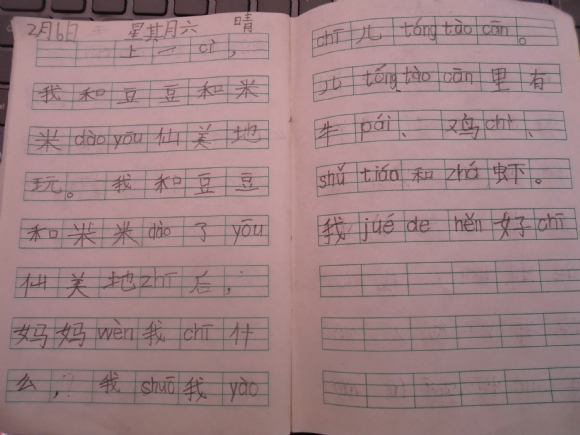 2月6日 星其月六 晴
上一cì，
我和豆豆和米
米dào yōu仙美地
玩。我和豆豆
和米米dào了yōu
仙美地zhī后，
妈妈wèn我chī什
么，？我shuō我yào
chī儿tóng tào cān。
儿tóng tào cān里有
牛pái、鸡chì、
shǔ tiáo和zhá虾。
我júé de hěn好chī